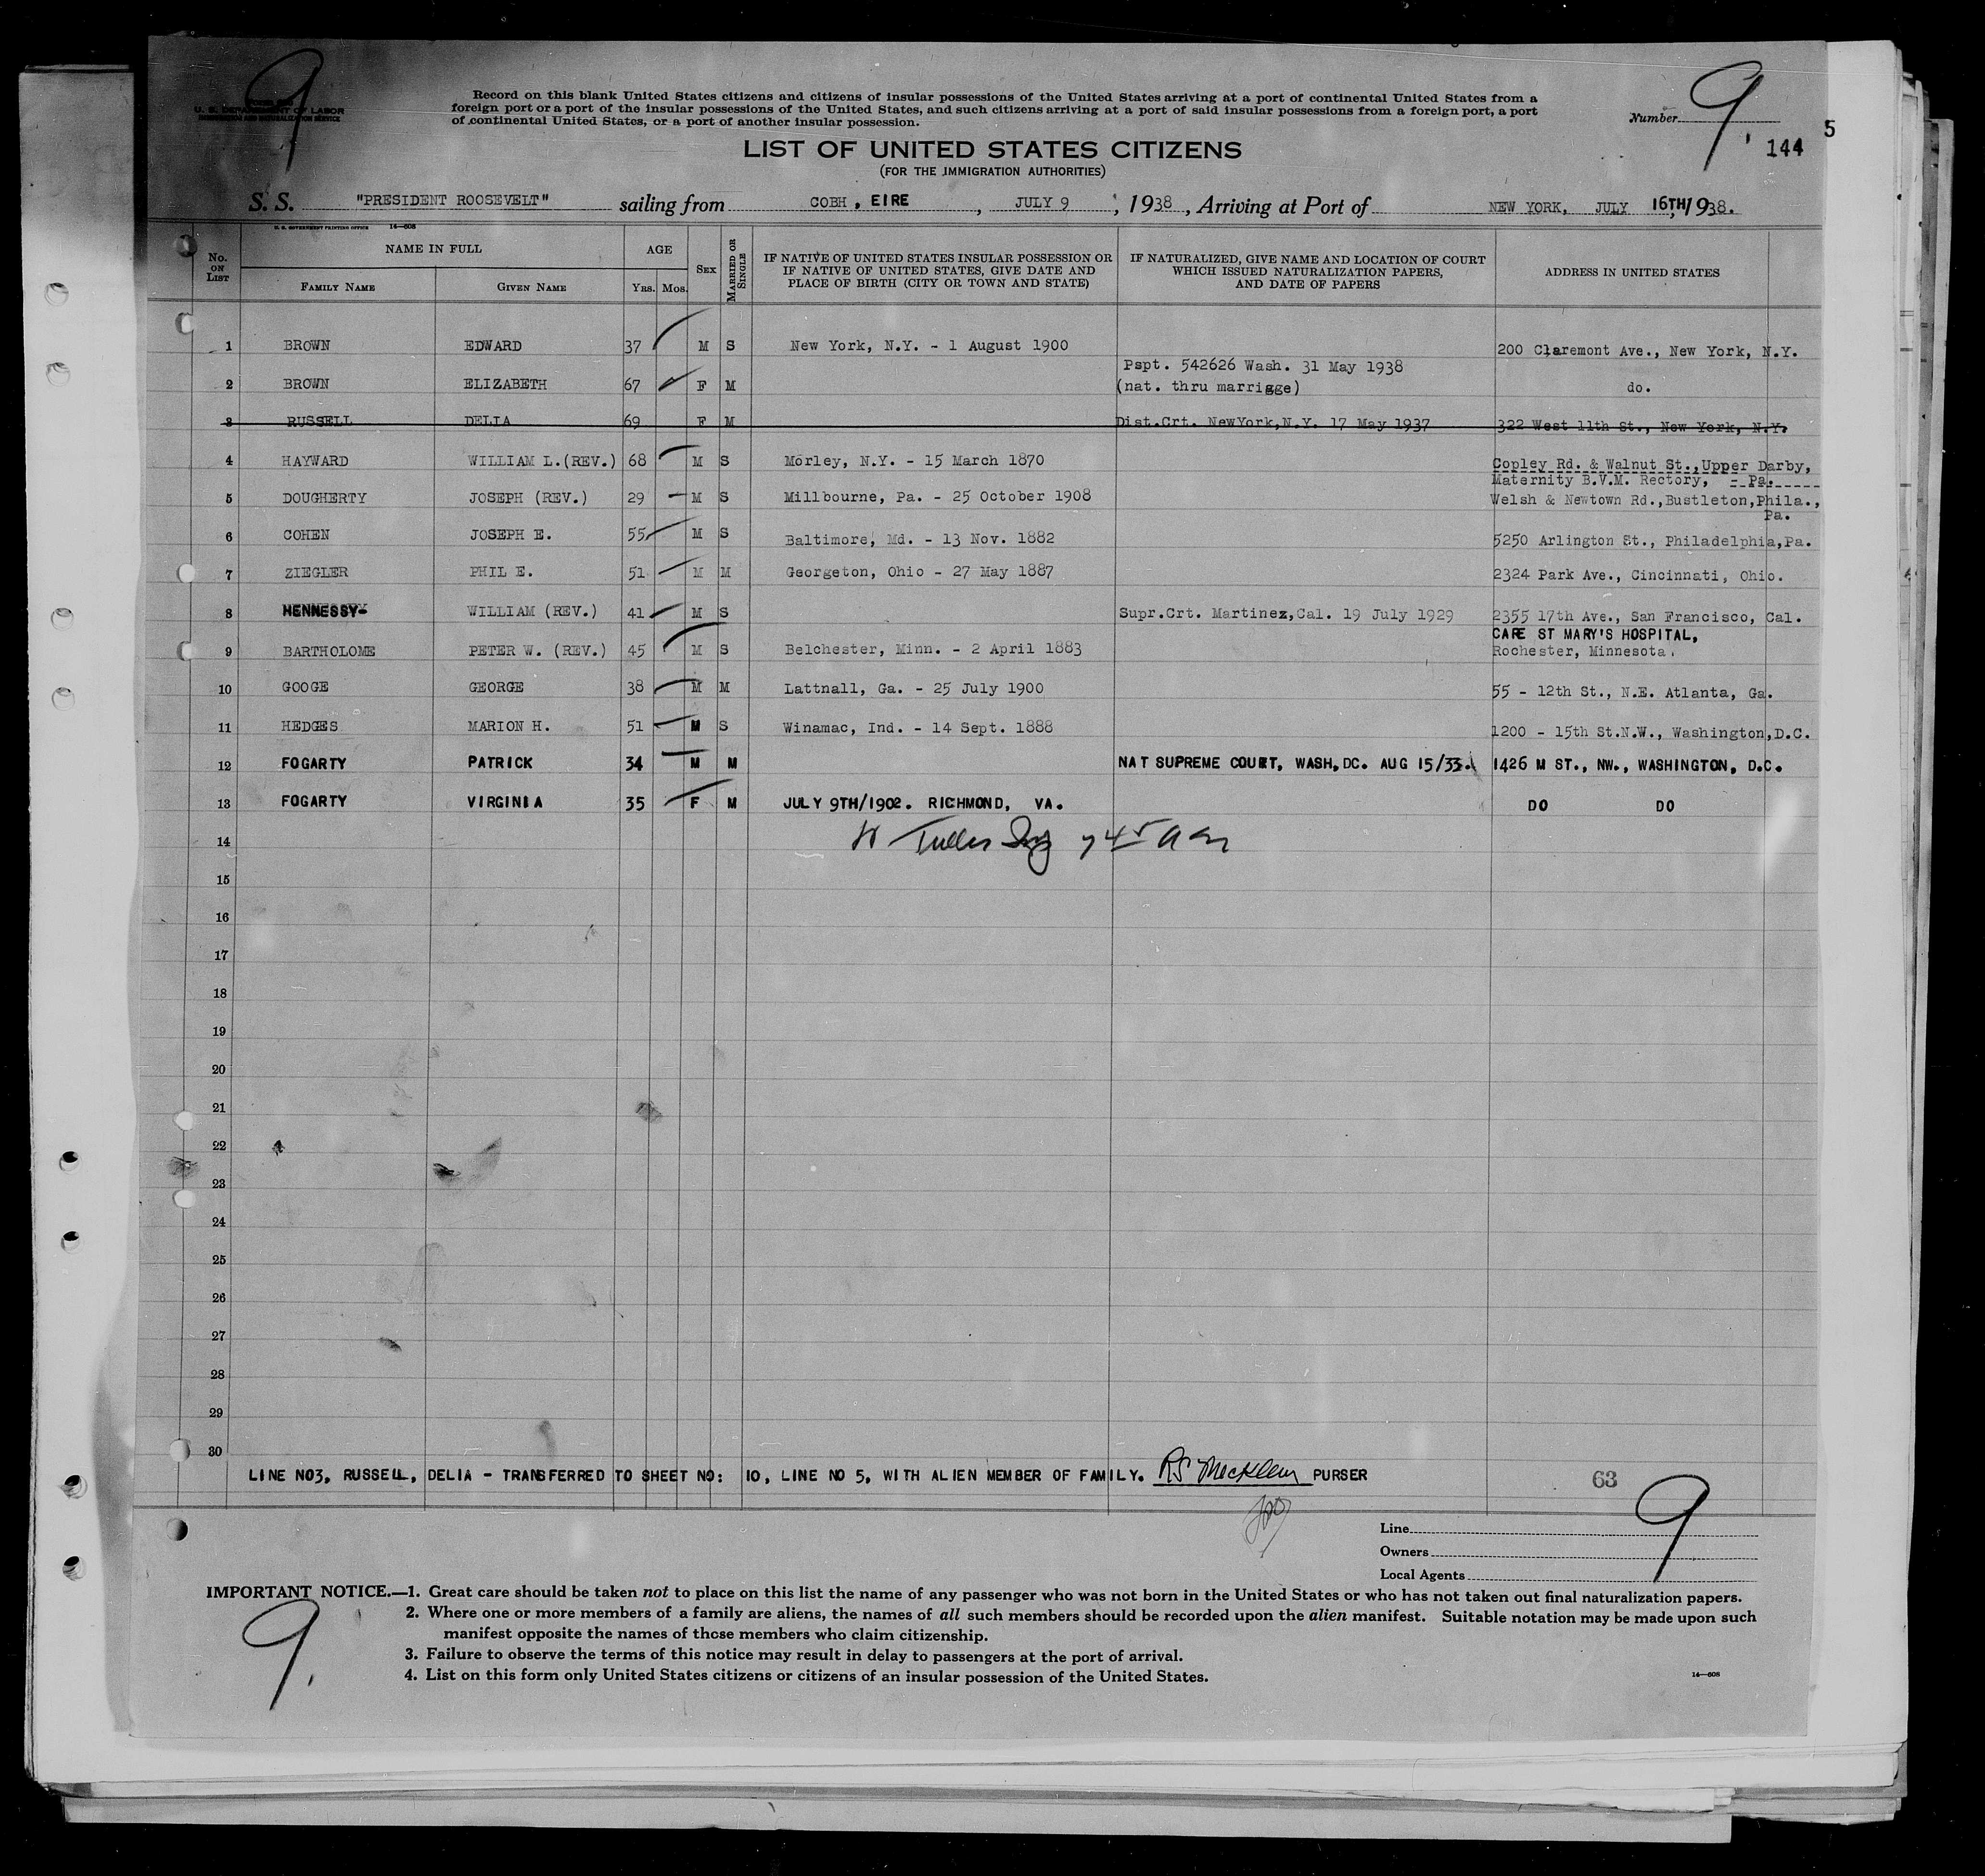 9
U. S. DEPARTMENT OF LABOR
IMMIGRATION AND NATURALIZATION SERVICE
Record on this blank United States citizens and citizens of insular possessions of the United States arriving at a port of continental United States from a
foreign port or a port of the insular possessions of the United States, and such citizens arriving at a port of said insular possessions from a foreign port, a port
of continental United States, or a port of another insular possession.
Number 9
5
144
LIST OF UNITED STATES CITIZENS
(FOR THE IMMIGRATION AUTHORITIES)
S. S. "PRESIDENT ROOSEVELT" sailing from COBH, EIRE, JULY 9, 1938, Arriving at Port of NEW YORK, JULY 16TH, 1938.
U. S. GOVERNMENT PRINTING OFFICE 14—608
No. ON LIST
NAME IN FULL
FAMILY NAME GIVEN NAME
AGE
YRS. MOS.
SEX
MARRIED OR SINGLE
IF NATIVE OF UNITED STATES INSULAR POSSESSION OR
IF NATIVE OF UNITED STATES, GIVE DATE AND
PLACE OF BIRTH (CITY OR TOWN AND STATE)
IF NATURALIZED, GIVE NAME AND LOCATION OF COURT
WHICH ISSUED NATURALIZATION PAPERS,
AND DATE OF PAPERS
ADDRESS IN UNITED STATES
1 BROWN EDWARD 37 M S New York, N.Y. - 1 August 1900 200 Claremont Ave., New York, N.Y.
Pspt. 542626 Wash. 31 May 1938
2 BROWN ELIZABETH 67 F M (nat. thru marrigge) do.
3 RUSSELL DELIA 69 F M Dist.Crt. NewYork,N.Y. 17 May 1937 322 West 11th St., New York, N.Y.
4 HAYWARD WILLIAM L.(REV.) 68 M S Morley, N.Y. - 15 March 1870 Copley Rd. & Walnut St.,Upper Darby,
Maternity B.V.M. Rectory, - Pa.
5 DOUGHERTY JOSEPH (REV.) 29 M S Millbourne, Pa. - 25 October 1908 Welsh & Newtown Rd.,Bustleton,Phila.,
Pa.
6 COHEN JOSEPH E. 55 M S Baltimore, Md. - 13 Nov. 1882 5250 Arlington St., Philadelphia,Pa.
7 ZIEGLER PHIL E. 51 M M Georgeton, Ohio - 27 May 1887 2324 Park Ave., Cincinnati, Ohio.
8 HENNESSY WILLIAM (REV.) 41 M S Supr.Crt. Martinez,Cal. 19 July 1929 2355 17th Ave., San Francisco, Cal.
CARE ST MARY'S HOSPITAL,
9 BARTHOLOME PETER W. (REV.) 45 M S Belchester, Minn. - 2 April 1883 Rochester, Minnesota.
10 GOOGE GEORGE 38 M M Lattnall, Ga. - 25 July 1900 55 - 12th St., N.E. Atlanta, Ga.
11 HEDGES MARION H. 51 M S Winamac, Ind. - 14 Sept. 1888 1200 - 15th St.N.W., Washington,D.C.
12 FOGARTY PATRICK 34 M M NAT SUPREME COURT, WASH, DC. AUG 15/33. 1426 M ST., NW., WASHINGTON, D.C.
13 FOGARTY VIRGINIA 35 F M JULY 9TH/1902. RICHMOND, VA. DO DO
14
15
16
17
18
19
20
21
22
23
24
25
26
27
28
29
30
LINE NO3, RUSSELL, DELIA - TRANSFERRED TO SHEET NO: 10, LINE NO 5, WITH ALIEN MEMBER OF FAMILY. PURSER
63
9
Line
Owners
Local Agents
IMPORTANT NOTICE.—1. Great care should be taken not to place on this list the name of any passenger who was not born in the United States or who has not taken out final naturalization papers.
2. Where one or more members of a family are aliens, the names of all such members should be recorded upon the alien manifest. Suitable notation may be made upon such
manifest opposite the names of those members who claim citizenship.
3. Failure to observe the terms of this notice may result in delay to passengers at the port of arrival.
4. List on this form only United States citizens or citizens of an insular possession of the United States.
14—608
9.